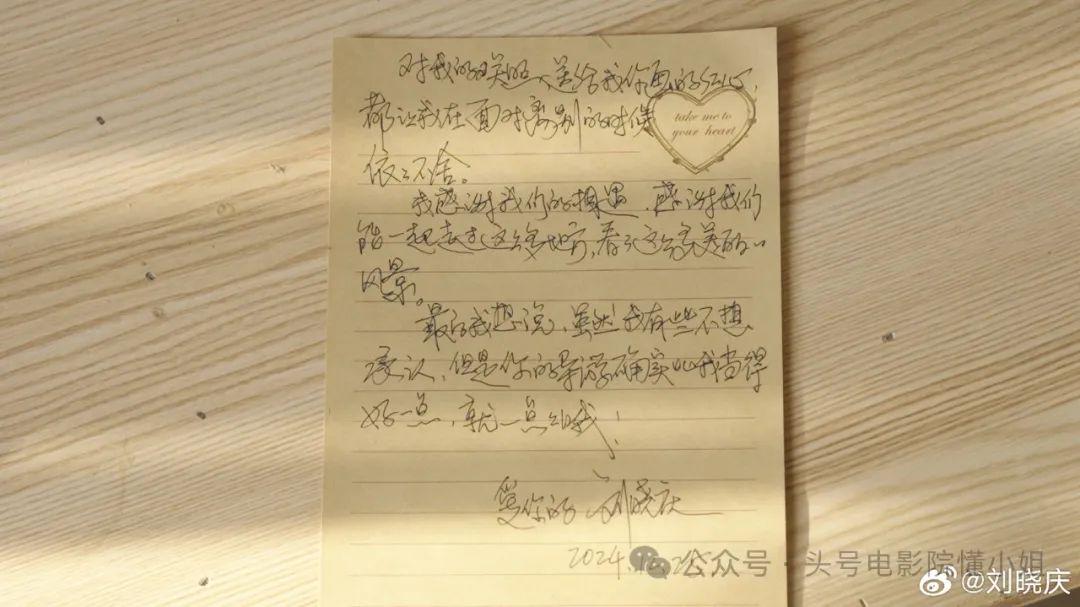 对我的关照、送给我你画的红心,
take me to
your heart
都让我在面对离别的时候
依々不舍。
我感谢我们的相遇,感谢我们
能一起去过这么多地方,看了这么多美的
风景。
最后我想说,虽然我有些不想
承认,但是你的导游确实比我当得
好一点,就一点点哦!
爱你的 刘晓庆
2024.
公众号·头号电影院懂小姐
@刘晓庆